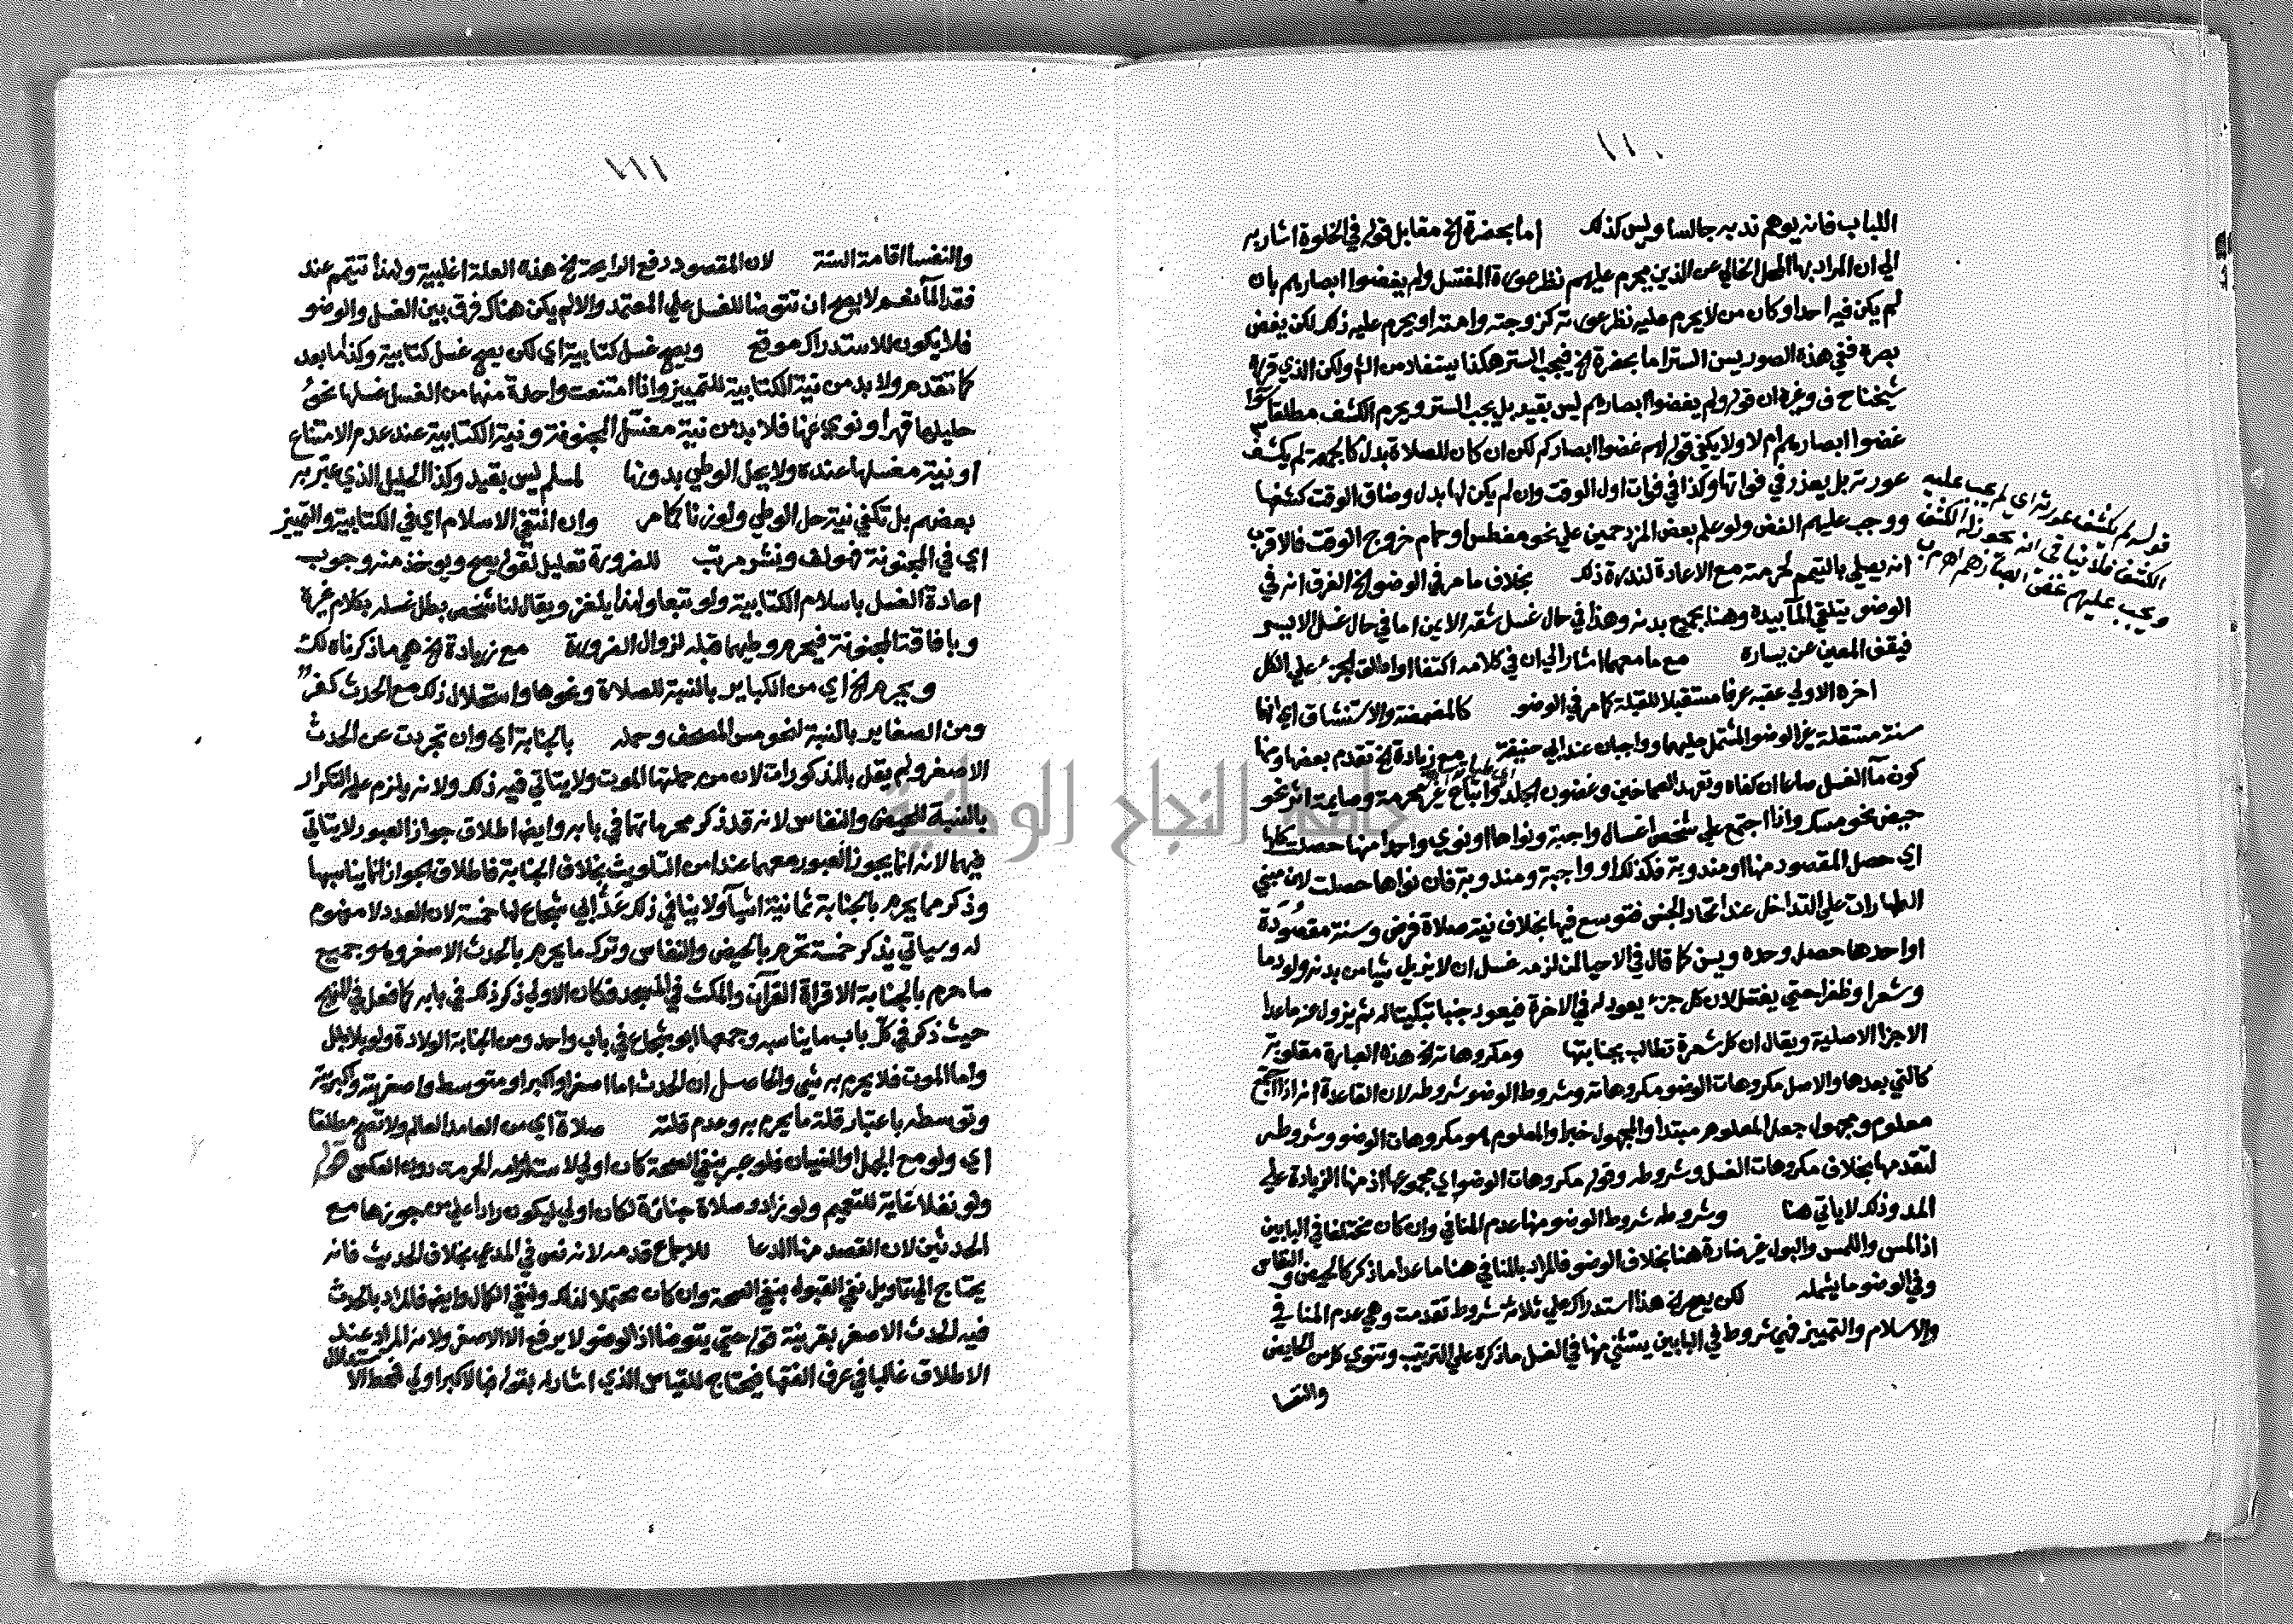 ١١٠
اللباب فانه يوهم ندبه جالسا وليس كذلك اما بحضرة الخ مقابل قوله في الخلوة اشار به
الي ان المراد بها المحل الخالي عن الذين يحرم عليهم نظر عورة المغتسل ولم يغضوا ابصارهم بان
لم يكن فيه احد او كان من لا يحرم عليه نظر عورته كزوجته وامته او يحرم عليه ذلك لكن يغض
بصره ففي هذه الصور يسن الستر اما بحضرة الخ فيجب الستر هكذا يستفاد من الش ولكن الذي قرره
شيخنا ح ف وغيره ان قوله ولم يغضوا ابصارهم ليس بقيد بل يجب الستر ويحرم الكشف مطلقا سوا
غضوا ابصارهم ام لا ولا يكفي قوله لهم غضوا ابصاركم لكن ان كان للصلاة بدل كالجمعة لم يكشف
عورته بل يعذر في فواتها وكذا في فوات اول الوقت وان لم يكن لها بدل وضاق الوقت كشفها
ووجب عليهم الغض ولو علم بعض المزدحمين علي نحو مغطس او حمام خروج الوقت فالاقرب
انه يصلي بالتيمم لحرمته مع الاعادة لندرة ذلك بخلاف ما مر في الوضو الخ الفرق انه في
الوضو يتلقي المآ بيده وهنا بجميع بدنه وهذا في حال غسل شقه الايمن اما في حال غسل الايسر
فيقف المعين عن يساره مع ما معهما اشار الي ان في كلامه اكتفا او اطلق الجزء علي الكل
اخره الاولي عقبه عرفا مستقبلا للقبلة كما مر في الوضو كالمضمضة والاستنشاق اي انها
سنة مستقلة غير الوضو المشتمل عليهما وواجبان عند ابي حنيفة مع زيادة الخ تقدم بعضها ومنها
كون مآ الغسل صاعا ان كفاه وتعهد الصماخين وغضون الجلد واتباع غير محرمة وصايمة اثر نحو
حيض نحو مسك واذا اجتمع علي شخص اغسال واجبة ونواها او نوي واحدا منها حصلت كلها
اي حصل المقصود منها او مندوبة فكذلك او واجبة ومندوبة فان نواها حصلت لان مبني
الطهارات علي التداخل عند اتحاد الجنس فتوسع فيها بخلاف نية صلاة فرض وسنة مقصودة
او احدها حصل وحده ويسن كما قال في الاحيا لمن لزمه غسل ان لا يزيل شيا من بدنه ولو دما
وشعرا وظفرا حتي يغتسل لان كل جزء يعود له في الاخرة فيعود جنبا تبكيتا له ثم يزول عنه ما عدا
الاجزا الاصلية ويقال ان كل شعرة تطالب بجنابتها ومكروهاته الخ هذه العبارة مقلوبة
كالتي بعدها والاصل مكروهات الوضو مكروهاته وشروط الوضو شروطه لان القاعدة انه اذا اجتمع
معلوم ومجهول جعل المعلوم مبتدا والمجهول خبرا والمعلوم هو مكروهات الوضو وشروطه
لتقدمها بخلاف مكروهات الغسل وشروطه وقوله مكروهات الوضو اي مجموعها اذ منها الزيادة علي
المد وذلك لا ياتي هنا وشروطه شروط الوضو منها عدم المنافي وان كان مختلفا في البابين
اذ المس واللمس والبول غير ضارة هنا بخلاف الوضو فالمراد بالمنافي هنا ما عدا ما ذكر كالحيض والنفاس
وفي الوضو ما يشمله لكن يصح الخ هذا استدراك علي ثلاثة شروط تقدمت وهي عدم المنافي
والاسلام والتمييز فهي شروط في البابين يستثني منها في الغسل ما ذكره علي الترتيب وتنوي كل من الحايض
والنفسا
قوله لم يكشف عورته اي لم يجب عليه
الكشف فلا ينافي انه يجوز له الكشف
ويجب عليهم غض ابصارهم اهـ م ر
١١١
والنفسا اقامة السنة لان المقصود رفع الرايحة الخ هذه العلة اغلبية ولهذا تتيمم عند
فقد المآ نعم لا يصح ان تتوضا للغسل علي المعتمد والا لم يكن هناك فرق بين الغسل والوضو
فلا يكون للاستدراك موقع ويصح غسل كتابية اي لكن يصح غسل كتابية وكذا ما بعد
كما تقدم ولا بد من نية الكتابية للتمييز واذا امتنعت واحدة منهما من الغسل غسلها نحو
حليلها قهرا ونوي عنها فلا بد من نية مغسل المجنونة ونية الكتابية عند عدم الامتناع
او نية مغسلها عنده ولا يحل الوطي بدونها لمسلم ليس بقيد وكذا الحليل الذي عبر به
بعضهم بل تكفي نية حل الوطي ولو زنا كما مر وان انتفي الاسلام اي في الكتابية والتمييز
اي في المجنونة فهو لف ونشر مرتب للضرورة تعليل لقوله يصح ويوخذ منه وجوب
اعادة الغسل باسلام الكتابية ولو تبعا ولهذا يلغز ويقال لنا شخص بطل غسله بكلام غيره
وبافاقة المجنونة فيحرم وطيهما قبله لزوال الضرورة مع زيادة الخ هي ما ذكرناه لك
ويحرم الخ اي من الكباير بالنسبة للصلاة ونحوها واستحلال ذلك مع الحدث كفر
ومن الصغاير بالنسبة لنحو مس المصحف وحمله بالجنابة اي وان تجردت عن الحدث
الاصغر ولم يقل بالمذكورات لان من جملتها الموت ولا يتاتي فيه ذلك ولانه يلزم عليه التكرار
بالنسبة للحيض والنفاس لانه قد ذكر محرماتهما في بابه وايضا اطلاق جواز العبور لا يتاتي
فيهما لانه انما يجوز العبور معهما عند امن التلويث بخلاف الجنابة فاطلاق الجواز انما يناسبها
وذكر مما يحرم بالجنابة ثمانية اشيآ ولا ينافي ذلك عدّ ابي شجاع لها خمسة لان العدد لا مفهوم
له وسياتي يذكر خمسة تحرم بالحيض والنفاس وتركه ما يحرم بالحدث الاصغر وهو جميع
ما حرم بالجنابة الا قراة القرآن والمكث في المسجد فكان الاولي ذكر ذلك في بابه كما فعل في المنهج
حيث ذكر في كل باب ما يناسبه وجمعها ابو شجاع في باب واحد ومن الجنابة الولادة ولو بلا بلل
واما الموت فلا يحرم به شي والحاصل ان الحدث اما اصغر او اكبر او متوسط واصغريته واكبريته
وتوسطه باعتبار قلة ما يحرم به وعدم قلته صلاة اي من العامد العالم ولا تصح مطلقا
اي ولو مع الجهل او النسيان فلو عبر بنفي الصحة كان اولي لاستلزامه الحرمة دون العكس قوله
ولو نفلا غاية للتعميم ولو زاد وصلاة جنازة لكان اولي ليكون رادا علي من جوزها مع
الحدثين لان القصد منها الدعا للاجماع قدمه لانه نص في المدعي بخلاف الحديث فانه
يحتاج الي تاويل نفي القبول بنفي الصحة وان كان محتملا لذلك ولنفي الكمال وايضا فالمراد بالحدث
فيه الحدث الاصغر بقرينة قوله حتي يتوضا اذ الوضو لا يرفع الا الاصغر ولانه المراد عند
الاطلاق غالبا في عرف الفقها فيحتاج للقياس الذي اشار له بقوله فبالاكبر اولي